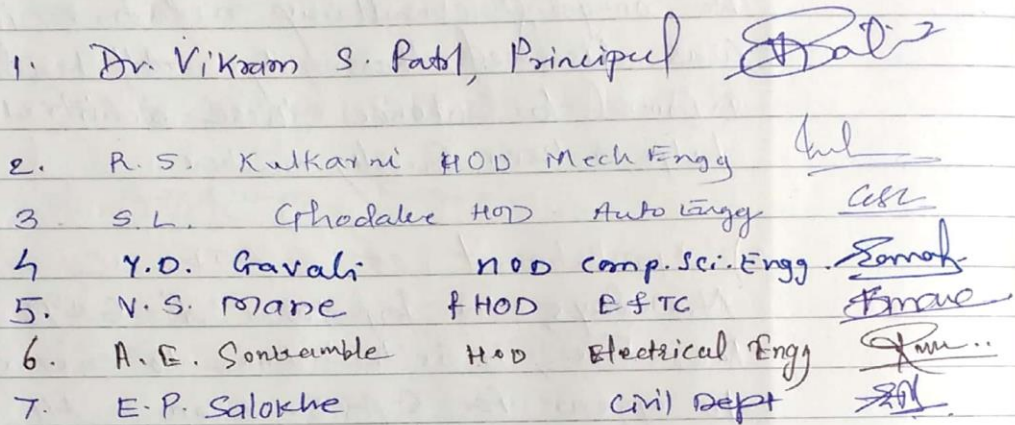 1. Dr. Vikram S. Patil, Principal
2. R. S. Kulkarni HOD Mech Engg
3 S. L. Ghodake HOD Auto Engg
4 Y. D. Gavali HOD Comp. Sci. Engg.
5. V. S. Mane HOD E & TC
6. A. E. Sontakke HOD Electrical Engg
7. E. P. Salokhe Civil Dept